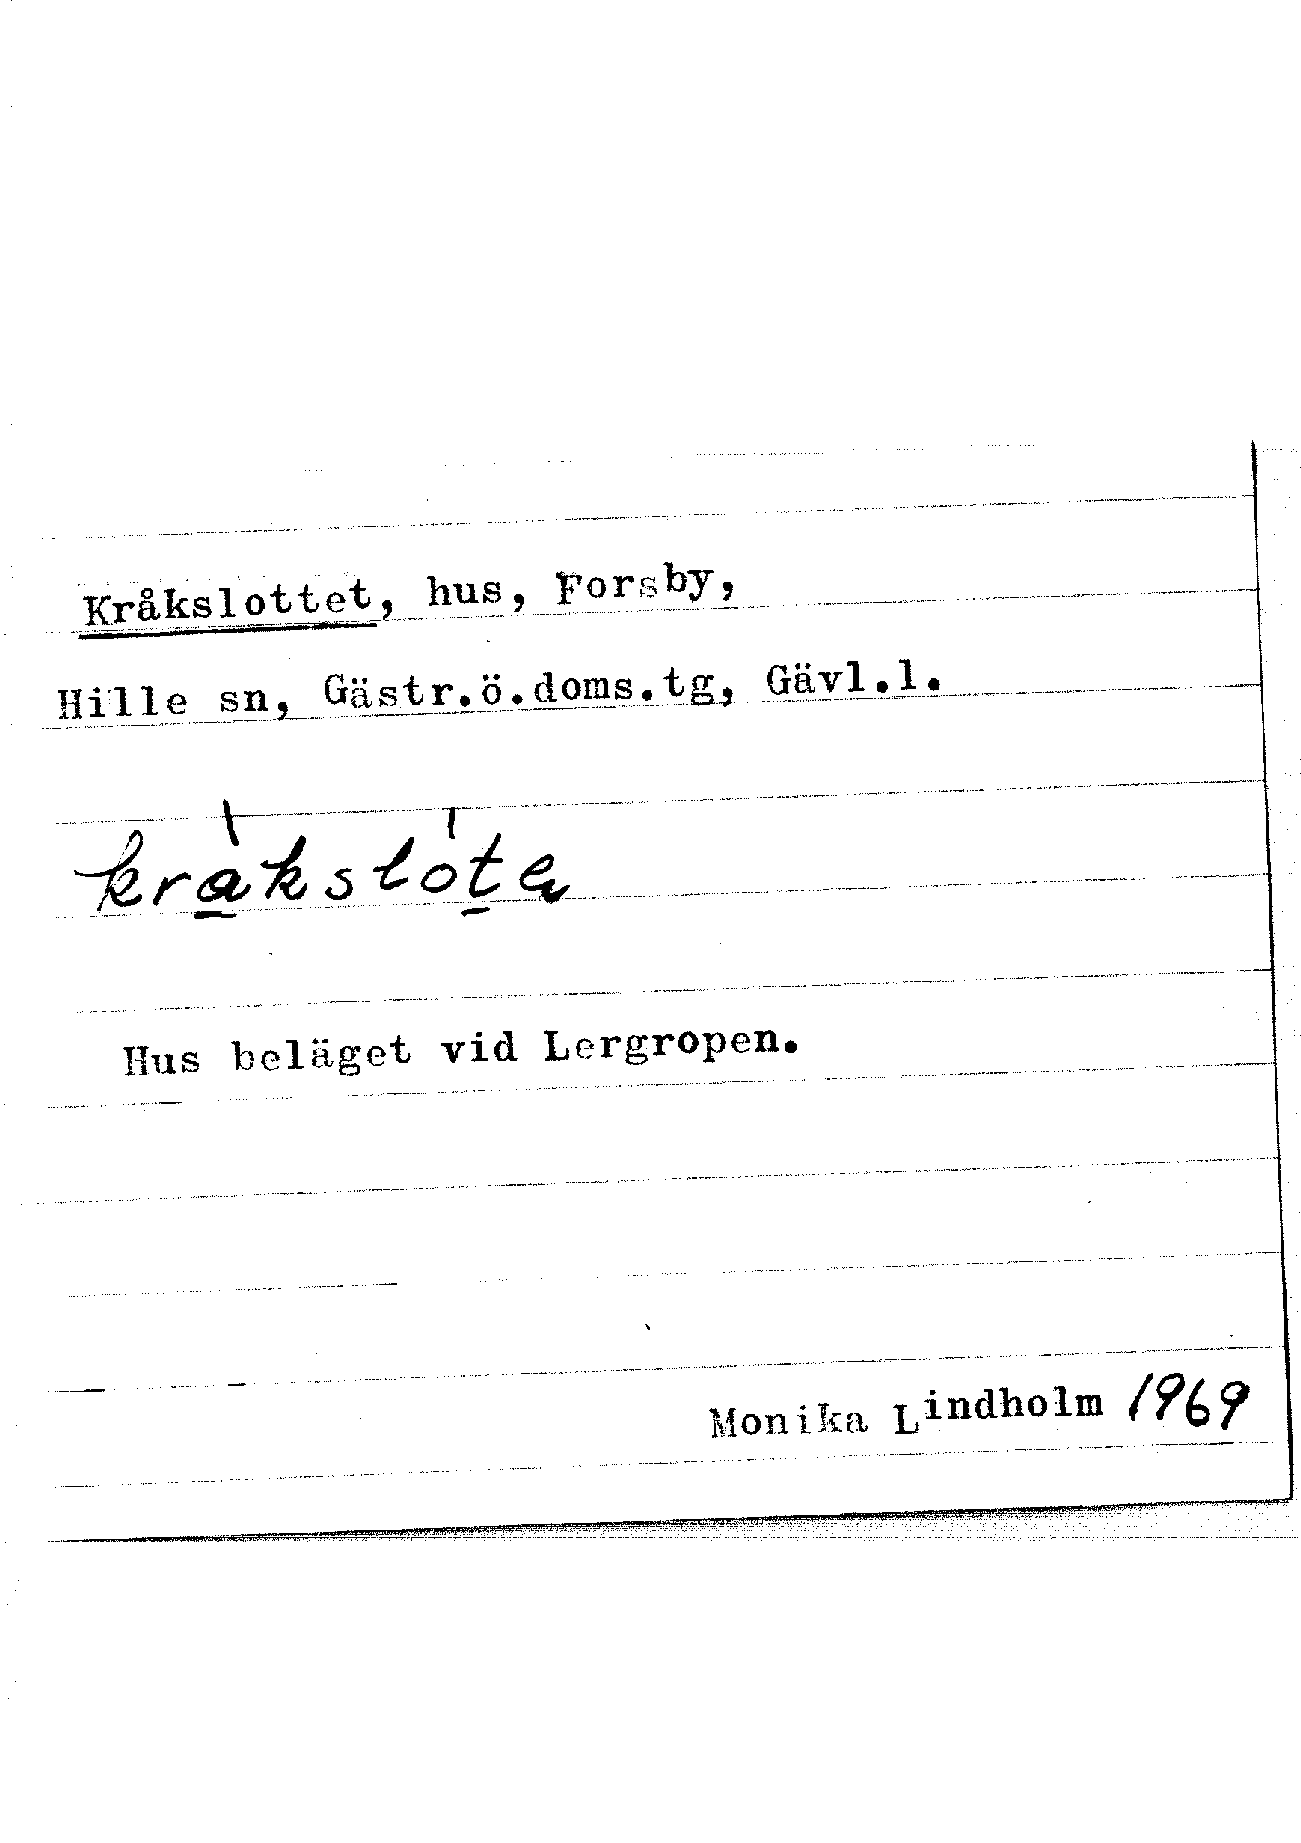 Kråkslottet, hus, Forsby,
Hille sn, Gästr.ö.doms.tg, Gävl.l.
Hus beläget vid Lergropen.
Monika Lindholm 1969